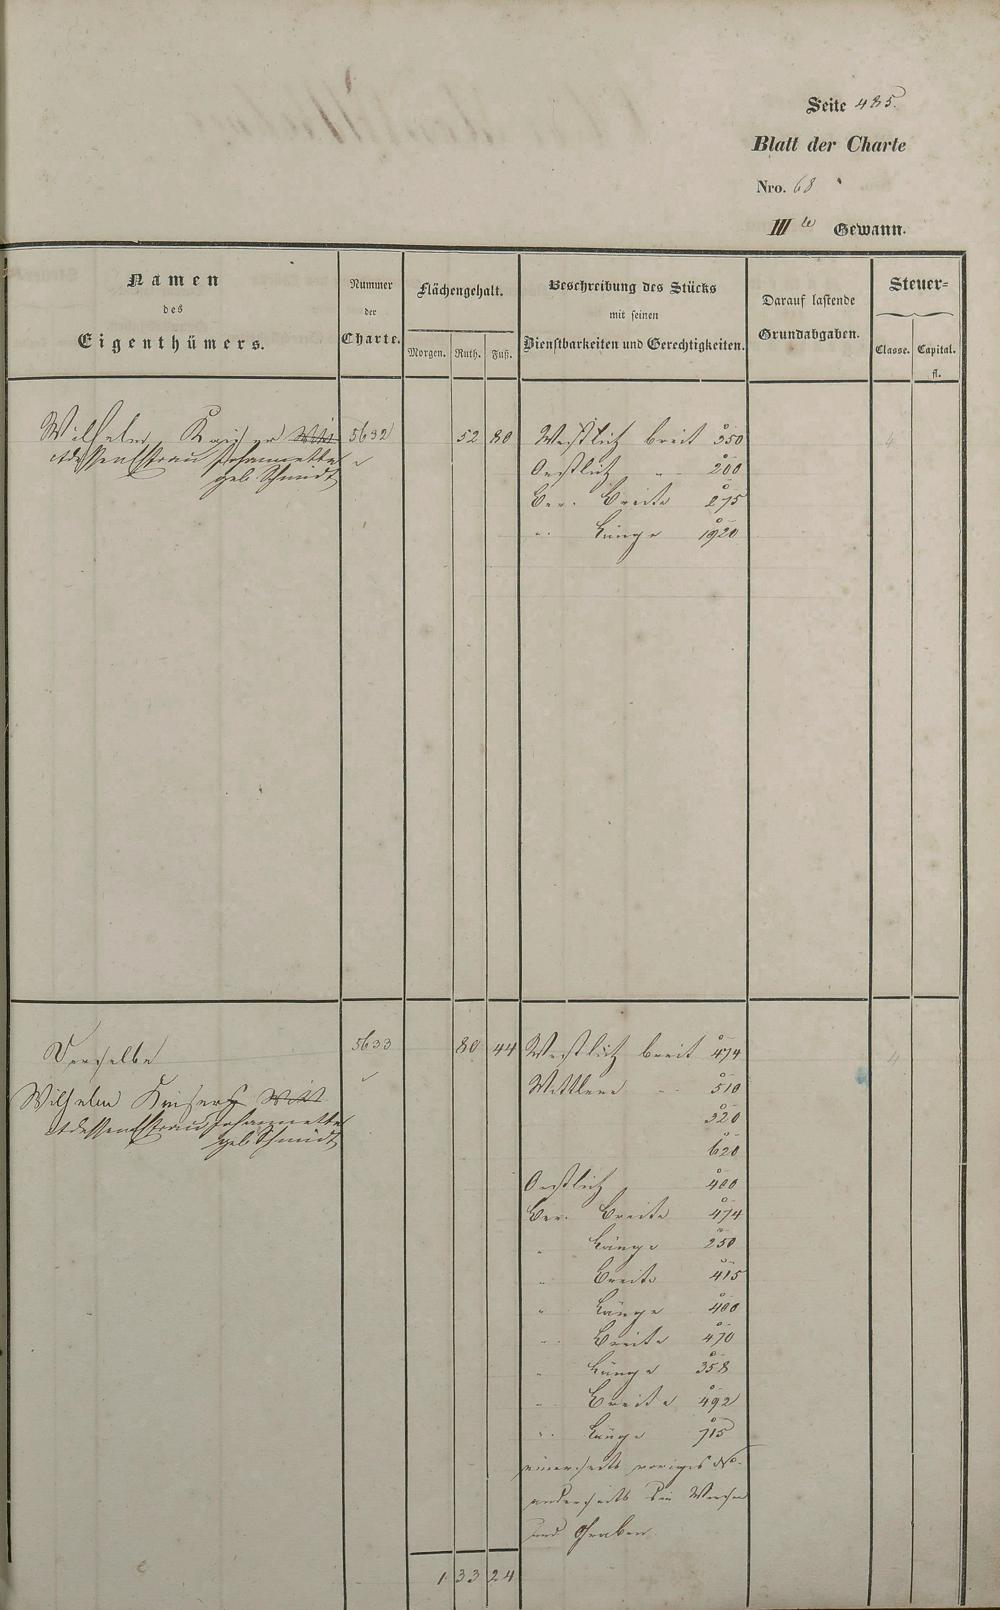 Seite 485.
Blatt der Charte
Nro. 68
III te Gewann.
Namen
des
Eigenthümers.
Nummer
der
Charte.
Flächengehalt.
Morgen. Ruth. Fuß.
Beschreibung des Stücks
mit seinen
Dienstbarkeiten und Gerechtigkeiten.
Darauf lastende
Grundabgaben.
Steuer=
Classe. Capital.
fl.
Wilhelm Kaiser 5632 52 80 Westlich breit 350 4
dessen Ehefrau Johannette
geb. Schmidt
Oestlich " 200
Ber. Breite 275
" Länge 1920
Derselbe 5633 80 44 Westlich breit 474 4
Wilhelm Kaiser
dessen Ehefrau Johannette
geb. Schmidt
Mittlere " 510
320
620
Oestlich 400
Ber. Breite 474
" Länge 250
" Breite 415
" Länge 400
" Breite 470
" Länge 358
" Breite 492
" Länge 715
einerseits voriges No.
anderseits die
und Graben
1 33 24